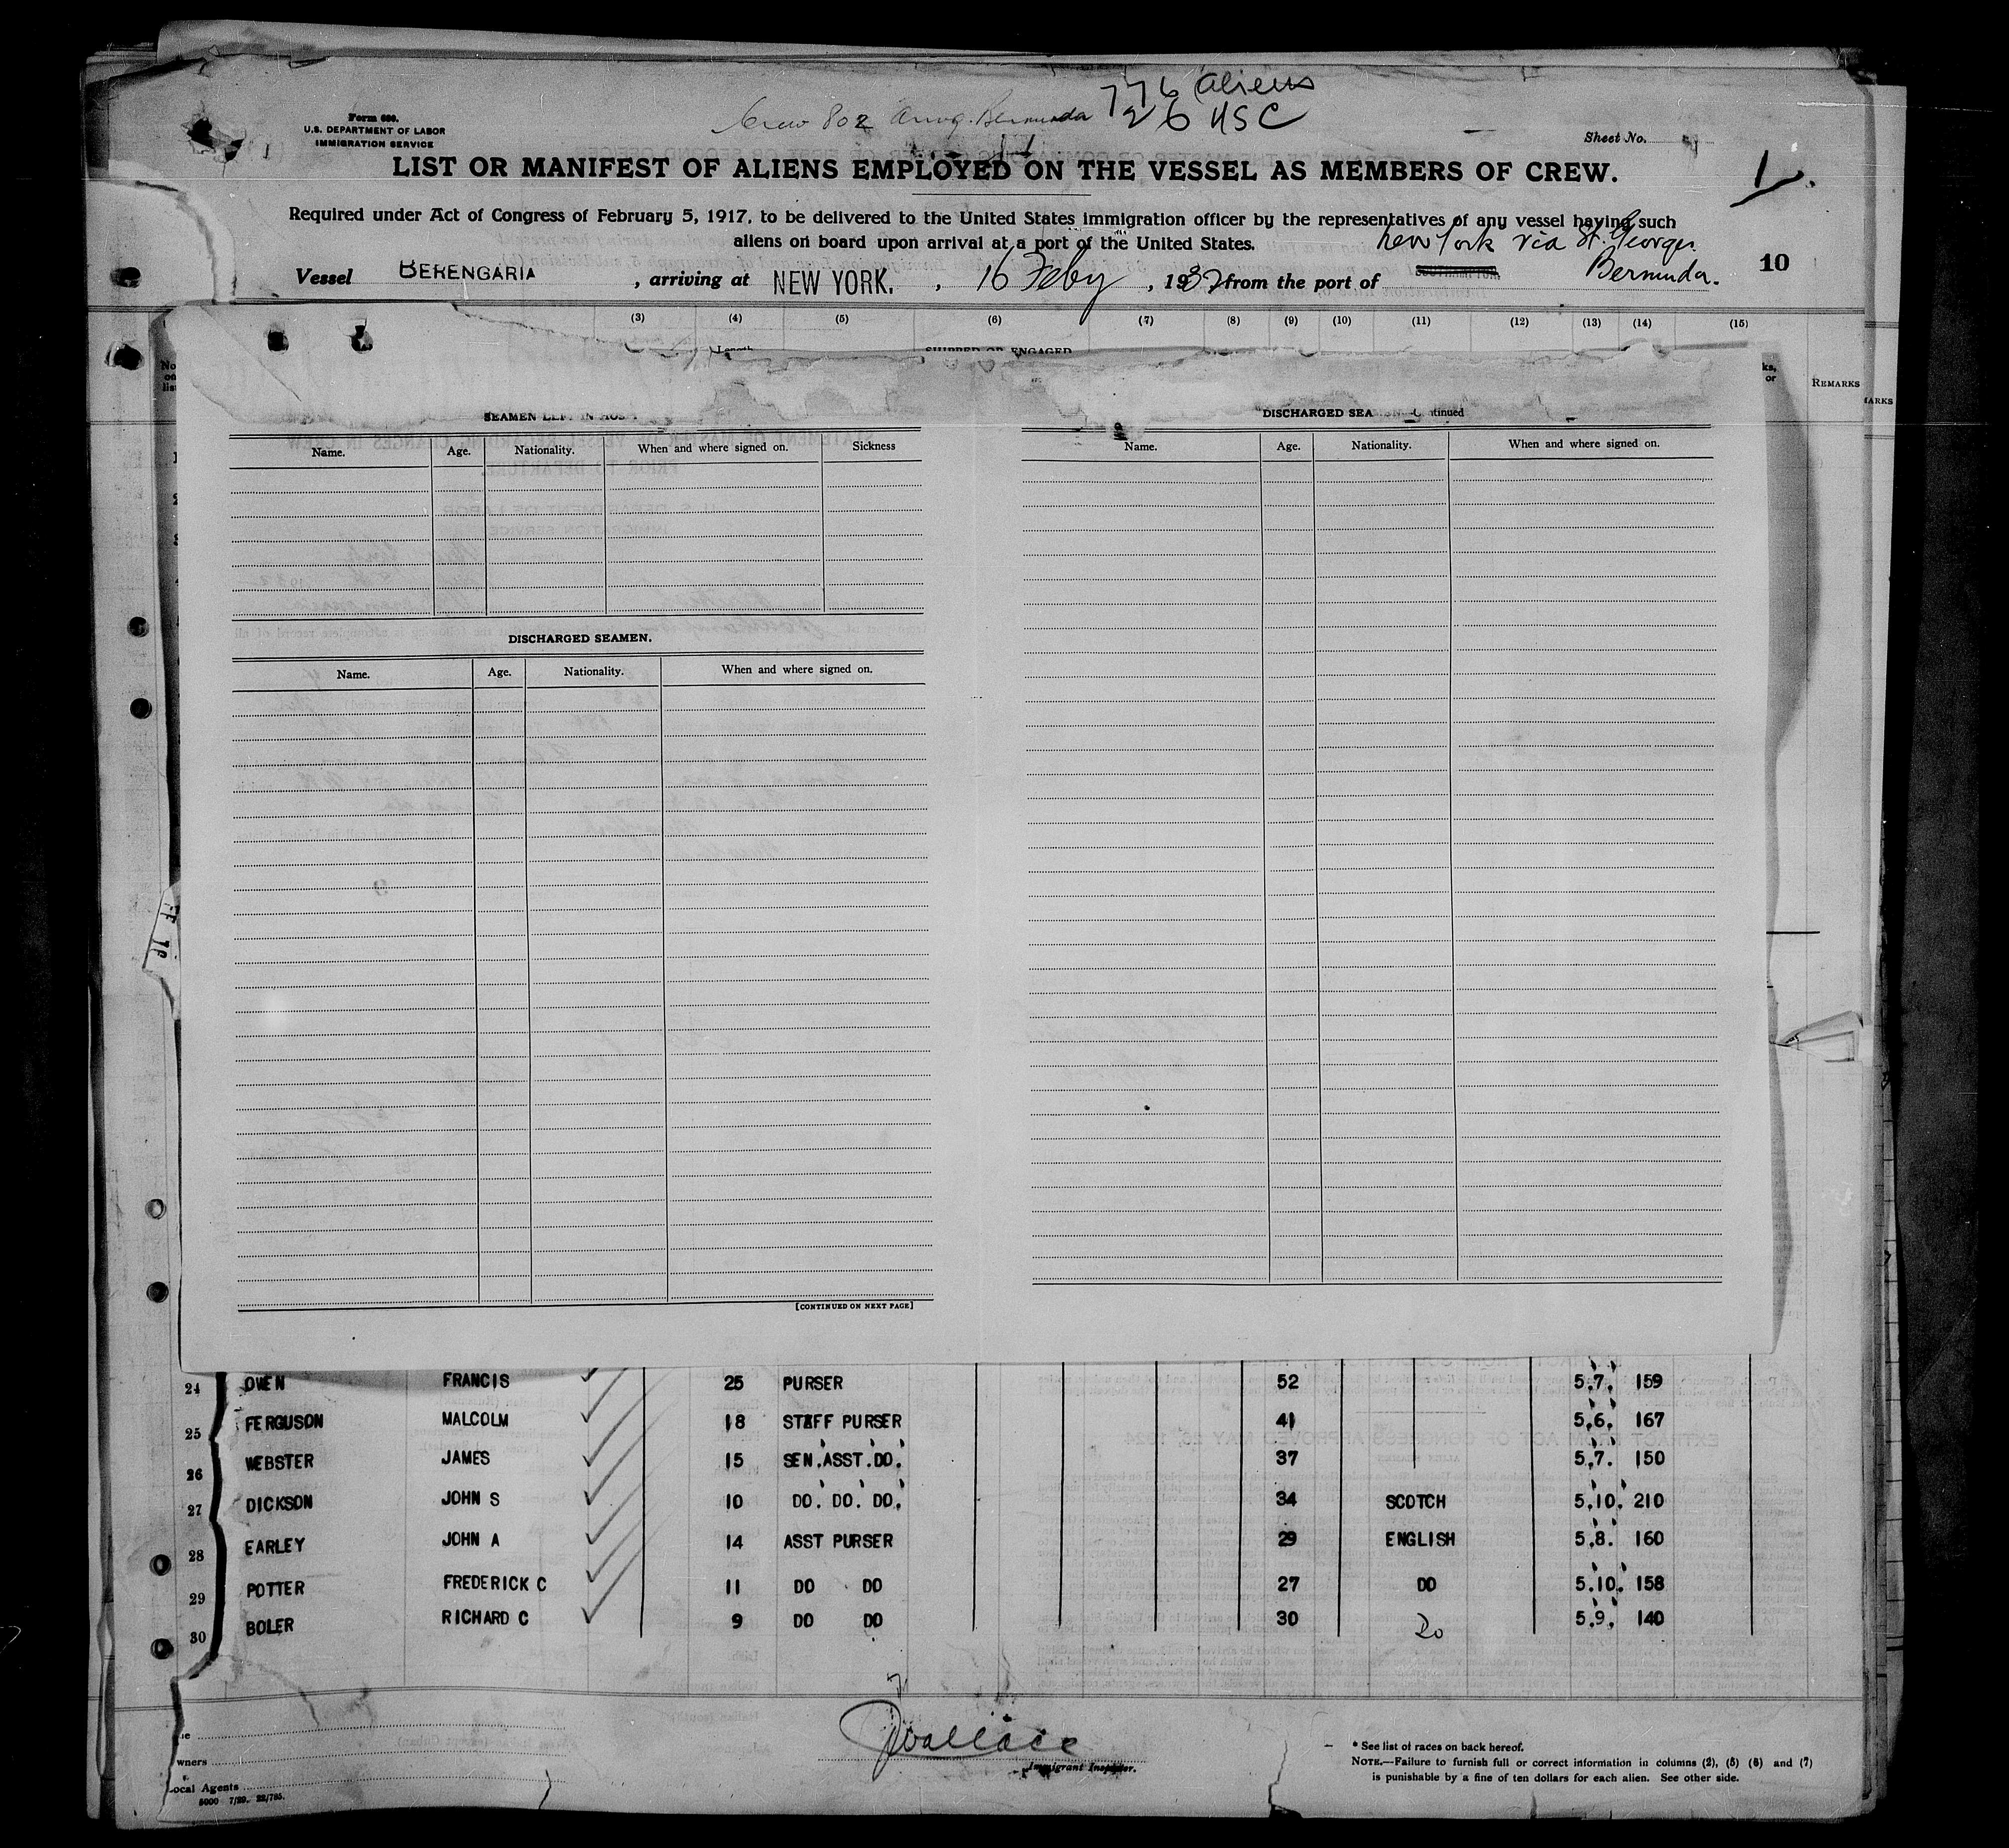 776 aliens
Crew 802 Arrvg. Bermuda 26 USC
Form 680.
U.S. DEPARTMENT OF LABOR
IMMIGRATION SERVICE
Sheet No.
LIST OR MANIFEST OF ALIENS EMPLOYED ON THE VESSEL AS MEMBERS OF CREW.
1
Required under Act of Congress of February 5, 1917, to be delivered to the United States immigration officer by the representatives of any vessel having such
aliens on board upon arrival at a port of the United States.
New York via St. Georges
Bermuda.
Vessel BERENGARIA, arriving at NEW YORK., 16 Feby, 1932 from the port of
10
(3) (4) (5) (6) (7) (8) (9) (10) (11) (12) (13) (14) (15)
Length SHIPPED OR ENGAGED
No
on
lis
ks,
or
REMARKS
ARKS
SEAMEN
Name. Age. Nationality. When and where signed on. Sickness
DISCHARGED SEAMEN.
Name. Age. Nationality. When and where signed on.
[CONTINUED ON NEXT PAGE]
DISCHARGED SEA
Name. Age. Nationality. When and where signed on.
24 OWEN FRANCIS 25 PURSER 52 5.7. 159
25 FERGUSON MALCOLM 18 STAFF PURSER 41 5.6. 167
26 WEBSTER JAMES 15 SEN.ASST.DO. 37 5.7. 150
27 DICKSON JOHN S 10 DO. DO. DO. 34 SCOTCH 5.10. 210
28 EARLEY JOHN A 14 ASST PURSER 29 ENGLISH 5.8. 160
29 POTTER FREDERICK C 11 DO DO 27 DO 5.10. 158
30 BOLER RICHARD C 9 DO DO 30 Do 5.9. 140
wners
ocal Agents
5000 7/29. 22/785.
Wallace
Immigrant Inspector.
* See list of races on back hereof.
NOTE.—Failure to furnish full or correct information in columns (2), (5) (6) and (7)
is punishable by a fine of ten dollars for each alien. See other side.